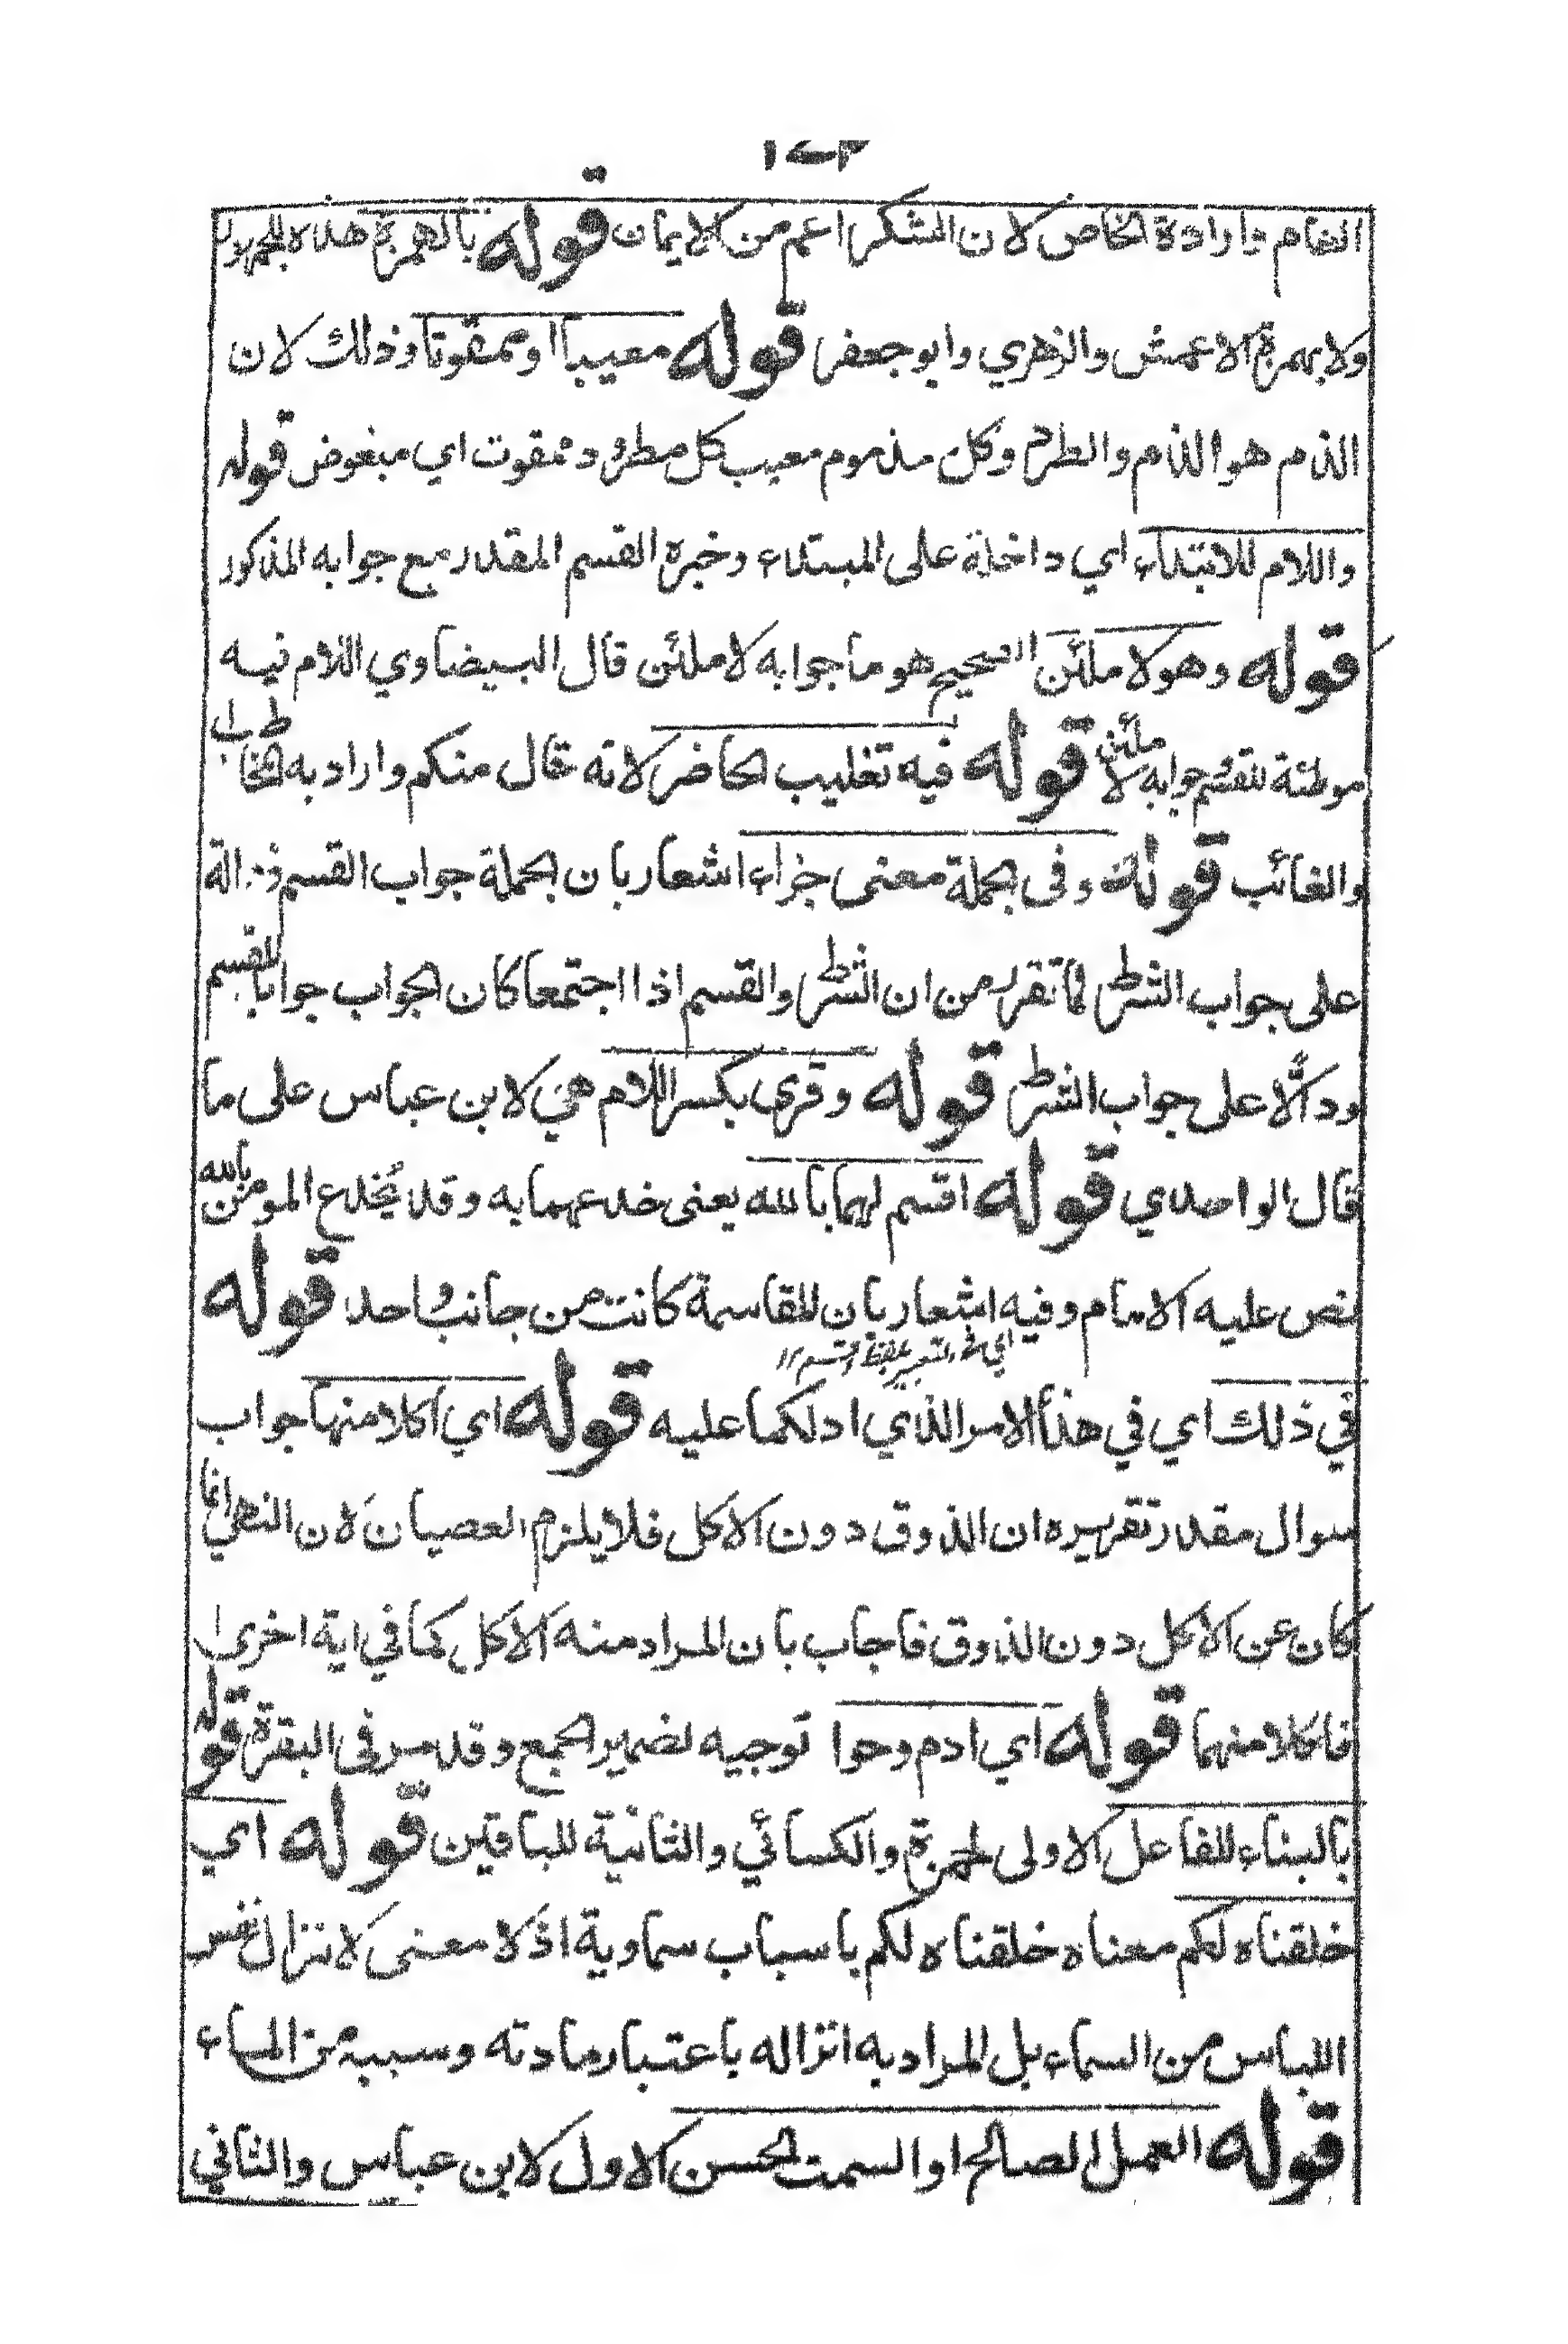 العام وارادة الخاص لان الشكر اعم من الايمان قوله بالهمزة هذه للجمهور
ولابهمزة الاعمش والزهري وابو جعفر قوله معيبا او ممقوتا وذلك لان
الذم هو الذام والطرد وكل مذموم معيب كل مطرود ممقوت اي مبغوض قوله
واللام للابتداء اي داخلة على المبتداء وخبره القسم المقدر مع جوابه المذكور
قوله وهو لاملئن الصحيح هو ما جوابه لاملئن قال البيضاوي اللام فيه
موطئة للقسم وجوابه لاملئن قوله فيه تغليب الحاضر لانه قال منكم واراد به الخطاب
والغائب قوله وفى الجملة معنى جزاء اشعار بان الجملة جواب القسم دالة
على جواب الشرط لما تقرر من ان الشرط والقسم اذا اجتمعا كان الجواب جوابا للقسم
ودالا على جواب الشرط قوله وقرى بكسر اللام هي لابن عباس على ما
قال الواحدي قوله اقسم لهما بالله يعنى خدعهما به وقد يُخدع المومن بالله
نص عليه الامام وفيه اشعار بان المقاسمة كانت من جانب واحد قوله
في ذلك اي في هذا الامر الذي ادلكما عليه قوله اي اكلا منها جواب
سوال مقدر تقريره ان الذوق دون الاكل فلا يلزم العصيان لان النهى انما
كان عن الاكل دون الذوق فاجاب بان المراد منه الاكل كما في اية اخرى
فاكلا منها قوله اي ادم وحوا توجيه لضمير الجمع وقد مر فى البقرة قوله
بالبناء للفاعل الاولى لحمزة والكسائي والثانية للباقين قوله اي
خلقناه لكم معناه خلقناه لكم باسباب سماوية اذ لا معنى لانزال نفس
اللباس من السماء بل المراد به انزاله باعتبار مادته وسببه من الماء
قوله العمل الصالح او السمت الحسن الاول لابن عباس والثاني